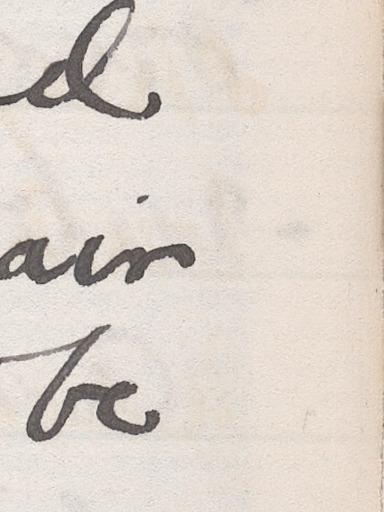 d
air
be